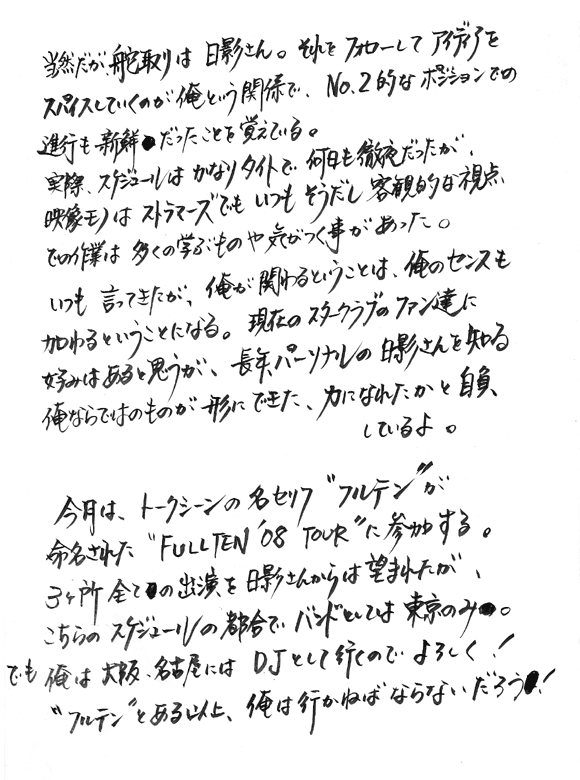 当然だが、舵取りは日影さん。それをフォローしてアイディアを
スパイスしていくのが俺という関係で、No.2的なポジションでの
進行も新鮮だったことを覚えている。
実際、スケジュールはかなりタイトで何日も徹夜だったが、
映像モノはストラマーズでもいつもそうだし客観的な視点
での作業は多くの学ぶものや気がつく事があった。
いつも言ってきたが、俺が関わるということは、俺のセンスも
加わるということになる。現在のスタークラブのファン達に
好みはあると思うが、長年、パーソナルの日影さんを知る
俺ならではのものが形にできた、力になれたかと自負
しているよ。
今月は、トークシーンの名セリフ"フルテン"が
命名された"FULLTEN '08 TOUR"に参加する。
3ヶ所全ての出演を日影さんからは望まれたが、
こちらのスケジュールの都合でバンドとしては東京のみ。
でも俺は大阪、名古屋にはDJとして行くのでよろしく!
"フルテン"とある以上、俺は行かねばならないだろう!